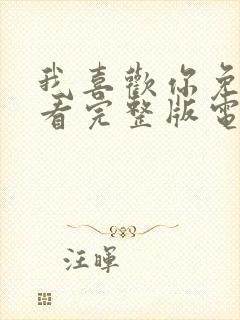 我喜歡你免
看完整版電
汪暉